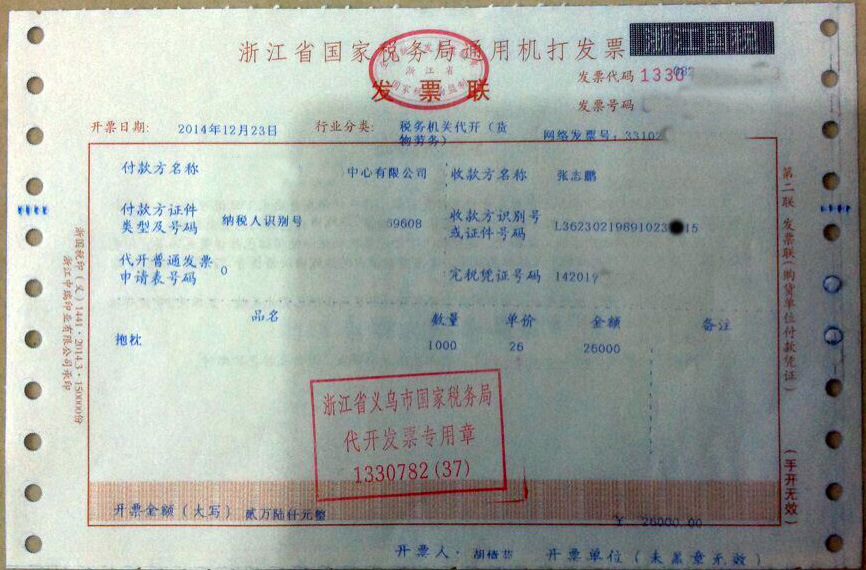 浙江省国家税务局通用机打发票
浙江国税
发票联
发票代码 1330
发票号码
开票日期: 2014年12月23日 行业分类: 税务机关代开（货物劳务） 网络发票号: 33102
付款方名称 中心有限公司 收款方名称 张志鹏
付款方证件类型及号码 纳税人识别号 69608 收款方识别号或证件号码 L36230219891023 15
代开普通发票申请表号码 0 完税凭证号码 14201
品名 数量 单价 金额 备注
抱枕 1000 26 26000
浙江省义乌市国家税务局
代开发票专用章
1330782(37)
开票金额（大写） 贰万陆仟元整 ￥ 26000.00
开票人: 开票单位（未盖章无效）
第二联 发票联（购货单位付款凭证）
（手开无效）
浙国税印（文）1441·2014.3·150000份
浙江中瑞印业有限公司承印